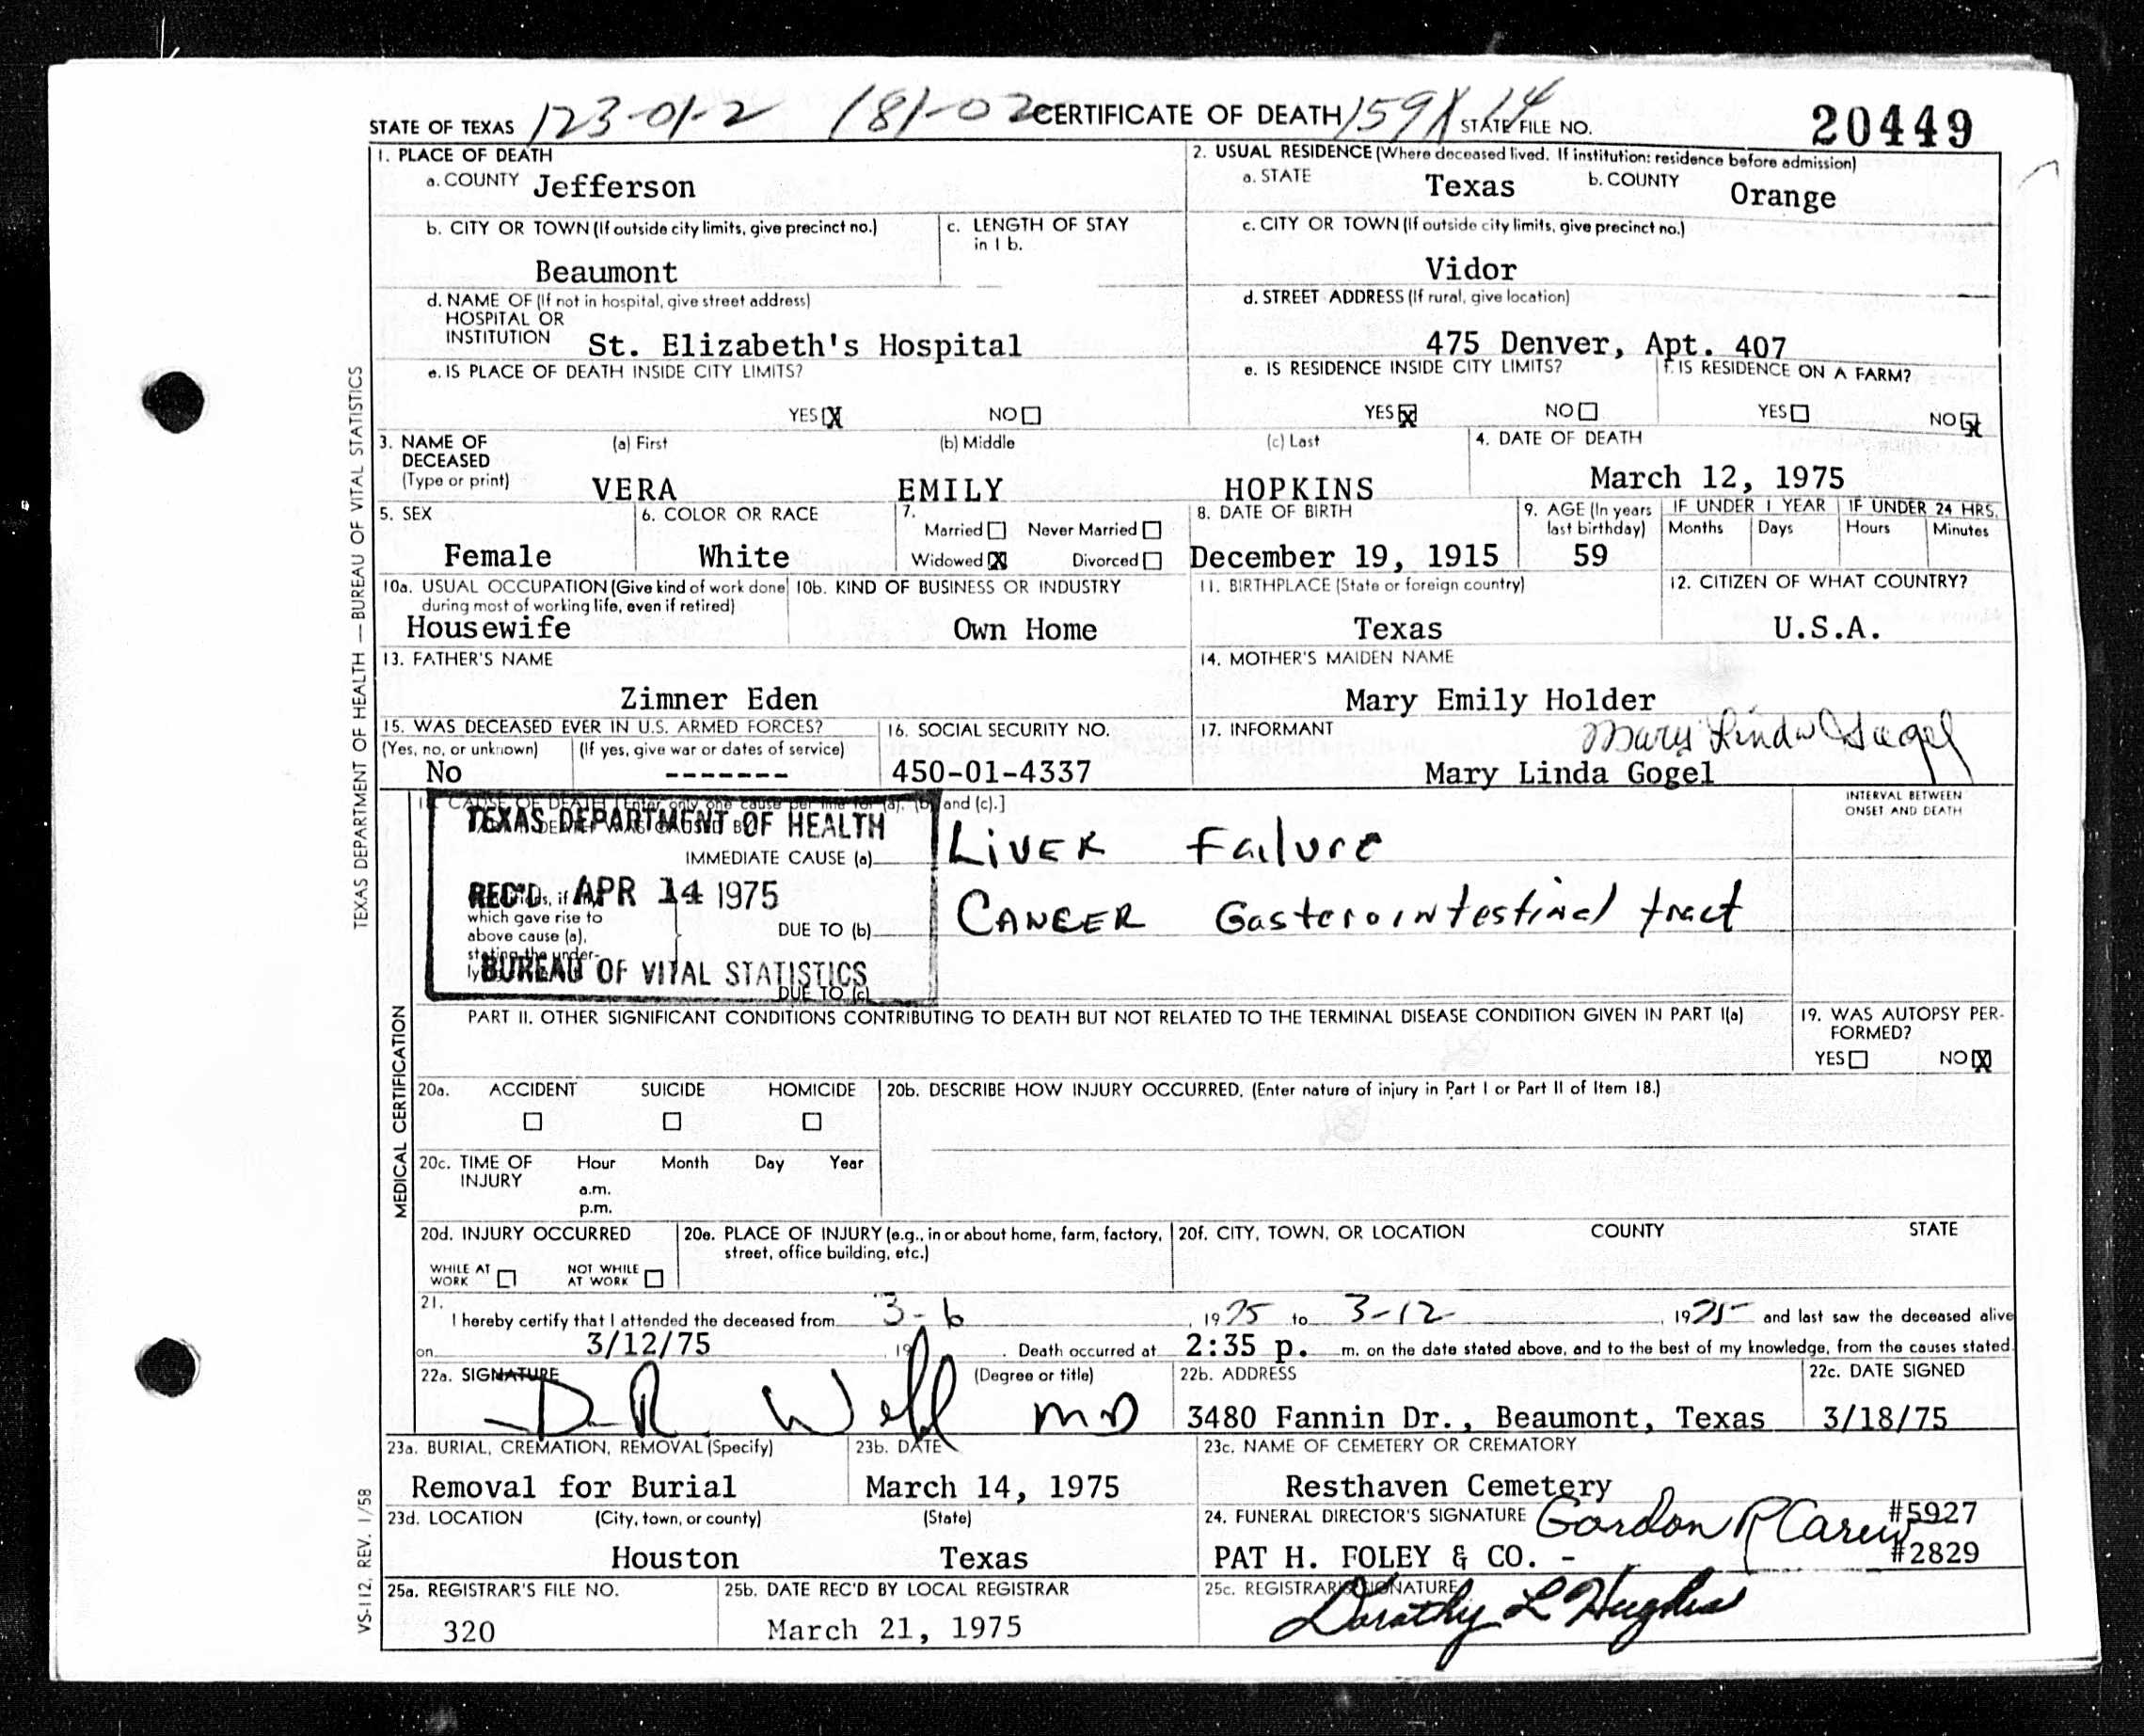 STATE OF TEXAS 123-01-2 181-02 CERTIFICATE OF DEATH 159X 14 STATE FILE NO. 20449
1. PLACE OF DEATH
a. COUNTY Jefferson
2. USUAL RESIDENCE (Where deceased lived. If institution: residence before admission)
a. STATE Texas b. COUNTY Orange
b. CITY OR TOWN (If outside city limits, give precinct no.)
Beaumont
c. LENGTH OF STAY
in 1 b.
c. CITY OR TOWN (If outside city limits, give precinct no.)
Vidor
d. NAME OF (If not in hospital, give street address)
HOSPITAL OR
INSTITUTION St. Elizabeth's Hospital
d. STREET ADDRESS (If rural, give location)
475 Denver, Apt. 407
e. IS PLACE OF DEATH INSIDE CITY LIMITS?
YES X NO
e. IS RESIDENCE INSIDE CITY LIMITS?
YES X NO
f. IS RESIDENCE ON A FARM?
YES NO X
3. NAME OF DECEASED
(Type or print)
(a) First (b) Middle (c) Last
VERA EMILY HOPKINS
4. DATE OF DEATH
March 12, 1975
5. SEX
Female
6. COLOR OR RACE
White
7.
Married Never Married
Widowed X Divorced
8. DATE OF BIRTH
December 19, 1915
9. AGE (In years
last birthday)
59
IF UNDER 1 YEAR
Months Days
IF UNDER 24 HRS.
Hours Minutes
10a. USUAL OCCUPATION (Give kind of work done
during most of working life, even if retired)
Housewife
10b. KIND OF BUSINESS OR INDUSTRY
Own Home
11. BIRTHPLACE (State or foreign country)
Texas
12. CITIZEN OF WHAT COUNTRY?
U.S.A.
13. FATHER'S NAME
Zimner Eden
14. MOTHER'S MAIDEN NAME
Mary Emily Holder
15. WAS DECEASED EVER IN U.S. ARMED FORCES?
(Yes, no, or unknown) (If yes, give war or dates of service)
No -------
16. SOCIAL SECURITY NO.
450-01-4337
17. INFORMANT Mary Linda Gogel
Mary Linda Gogel
CAUSE OF DEATH [Enter only one cause per line for (a), (b) and (c).]
INTERVAL BETWEEN
ONSET AND DEATH
TEXAS DEPARTMENT OF HEALTH
IMMEDIATE CAUSE (a) LIVER Failure
REC'D APR 14 1975
which gave rise to
above cause (a),
stating the under-
DUE TO (b) CANCER Gasterointestinal tract
BUREAU OF VITAL STATISTICS
DUE TO (c)
PART II. OTHER SIGNIFICANT CONDITIONS CONTRIBUTING TO DEATH BUT NOT RELATED TO THE TERMINAL DISEASE CONDITION GIVEN IN PART I(a)
19. WAS AUTOPSY PER-
FORMED?
YES NO X
20a. ACCIDENT SUICIDE HOMICIDE
20b. DESCRIBE HOW INJURY OCCURRED. (Enter nature of injury in Part I or Part II of Item 18.)
20c. TIME OF INJURY
Hour Month Day Year
a.m.
p.m.
20d. INJURY OCCURRED
WHILE AT WORK NOT WHILE AT WORK
20e. PLACE OF INJURY (e.g., in or about home, farm, factory,
street, office building, etc.)
20f. CITY, TOWN, OR LOCATION COUNTY STATE
21.
I hereby certify that I attended the deceased from 3-6, 1975 to 3-12, 1975 and last saw the deceased alive
on 3/12/75, 19 . Death occurred at 2:35 p. m. on the date stated above, and to the best of my knowledge, from the causes stated.
22a. SIGNATURE (Degree or title)
D R MD
22b. ADDRESS
3480 Fannin Dr., Beaumont, Texas
22c. DATE SIGNED
3/18/75
23a. BURIAL, CREMATION, REMOVAL (Specify)
Removal for Burial
23b. DATE
March 14, 1975
23c. NAME OF CEMETERY OR CREMATORY
Resthaven Cemetery
23d. LOCATION (City, town, or county) (State)
Houston Texas
24. FUNERAL DIRECTOR'S SIGNATURE Gordon R Carew #5927
PAT H. FOLEY & CO. - #2829
25a. REGISTRAR'S FILE NO.
320
25b. DATE REC'D BY LOCAL REGISTRAR
March 21, 1975
25c. REGISTRAR'S SIGNATURE
Dorothy L Hughes
TEXAS DEPARTMENT OF HEALTH — BUREAU OF VITAL STATISTICS
MEDICAL CERTIFICATION
VS-112, REV. 1/58